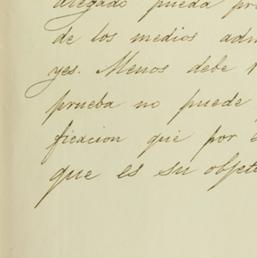 alegado pueda pr
de los medios adm
yes. Menos debe
prueba no puede
ficacion que por e
que es su objet